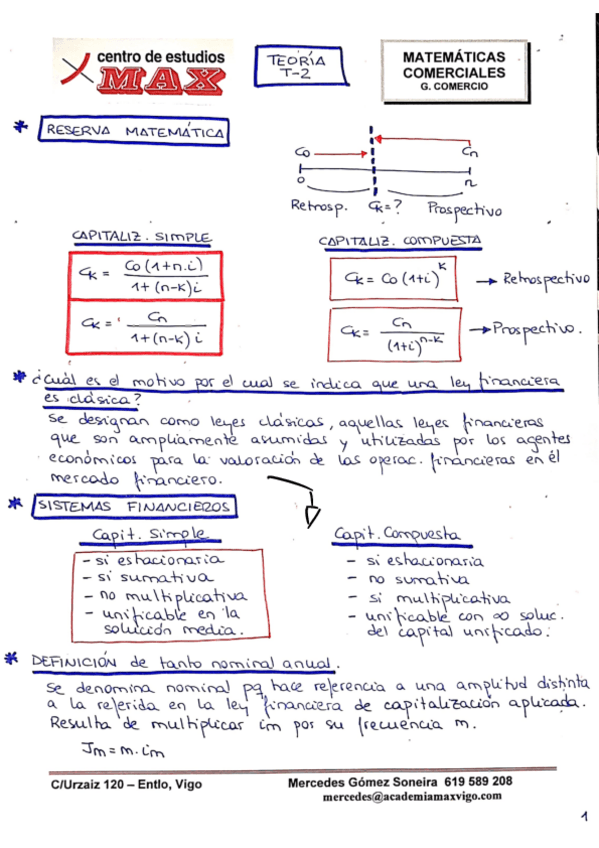 centro de estudios
MAX
TEORÍA
T-2
MATEMÁTICAS
COMERCIALES
G. COMERCIO
* RESERVA MATEMÁTICA
Co Cn
0 n
Retrosp. Ck=? Prospectivo
CAPITALIZ. SIMPLE
Ck = Co(1+n.i) / 1+(n-k)i
Ck = Cn / 1+(n-k)i
CAPITALIZ. COMPUESTA
Ck = Co(1+i)^k → Retrospectivo
Ck = Cn / (1+i)^n-k → Prospectivo.
* ¿Cuál es el motivo por el cual se indica que una ley financiera
es clásica?
Se designan como leyes clásicas, aquellas leyes financieras
que son ampliamente asumidas y utilizadas por los agentes
económicos para la valoración de las operac. financieras en el
mercado financiero.
* SISTEMAS FINANCIEROS
Capit. Simple
- si estacionaria
- si sumativa
- no multiplicativa
- unificable en la
solución media.
Capit. Compuesta
- si estacionaria
- no sumativa
- si multiplicativa
- unificable con ∞ soluc.
del capital unificado.
* DEFINICIÓN de tanto nominal anual.
Se denomina nominal pq hace referencia a una amplitud distinta
a la referida en la ley financiera de capitalización aplicada.
Resulta de multiplicar im por su frecuencia m.
Jm = m. im
C/Urzaiz 120 – Entlo, Vigo
Mercedes Gómez Soneira 619 589 208
mercedes@academiamaxvigo.com
1